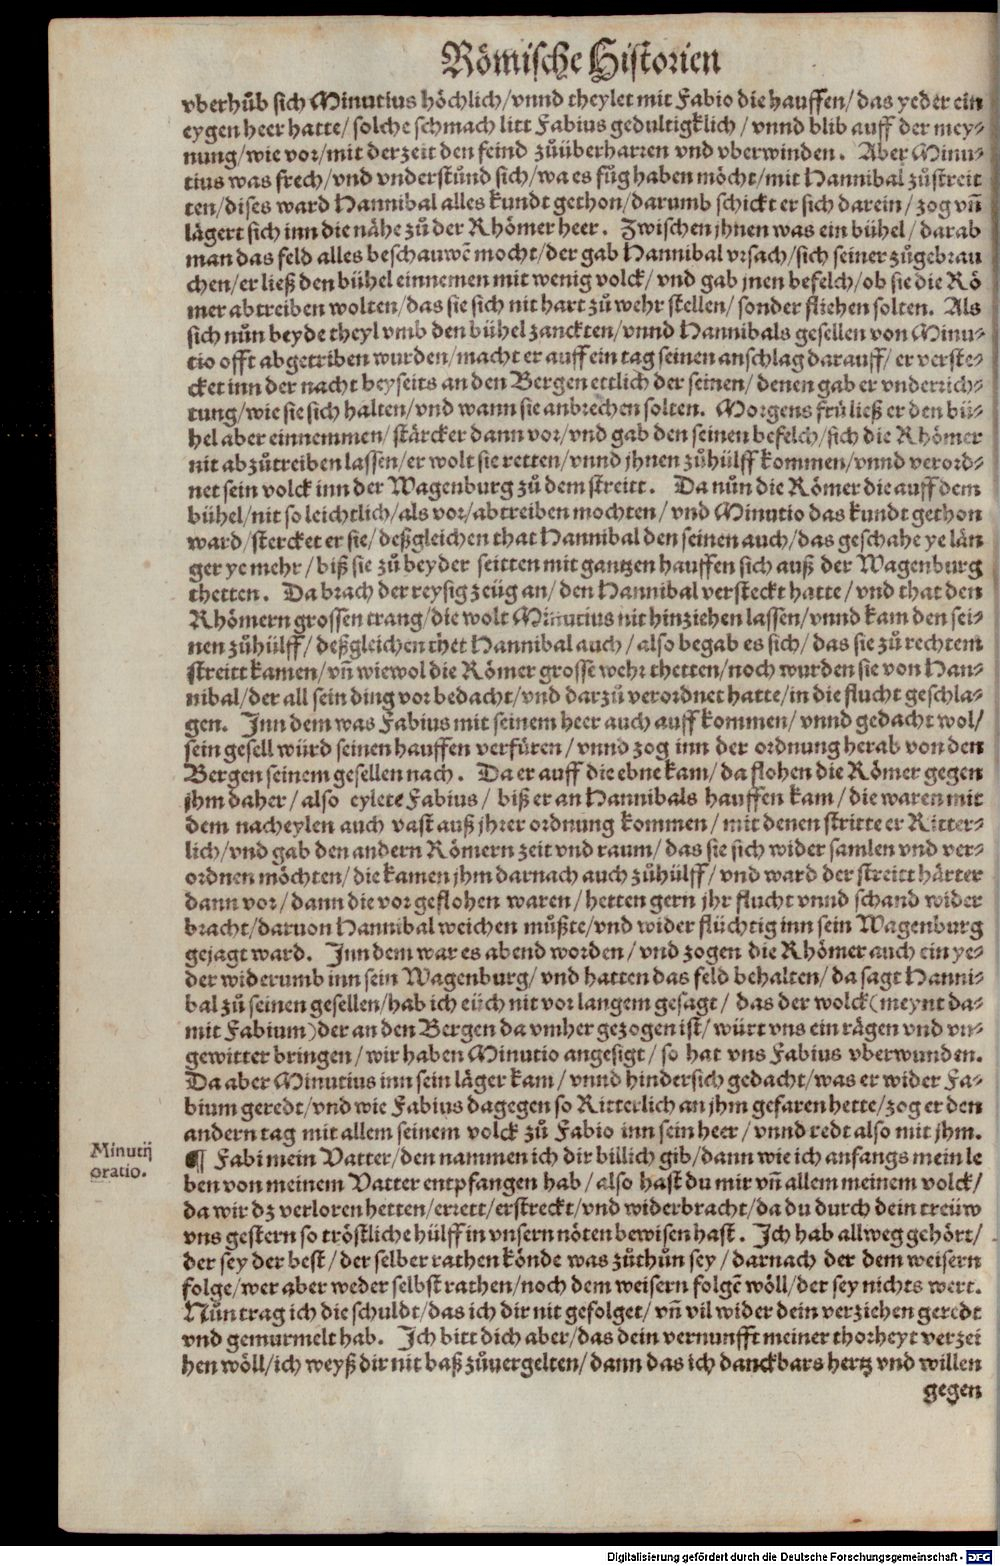 Römische Historien
vberhůb sich Minutius höchlich/vnnd theylet mit Fabio die hauffen/das yeder ein
eygen heer hatte/solche schmach litt Fabius gedultigklich/vnnd blib auff der mey-
nung/wie vor/mit der zeit den feind zůüberharren vnd vberwinden. Aber Minu-
tius was frech/vnd vnderstůnd sich/wa es fůg haben möcht/mit Hannibal zůstreit
ten/dises ward Hannibal alles kundt gethon/darumb schickt er sich darein/zog vñ
lägert sich inn die nähe zů der Rhömer heer. Zwischen jhnen was ein bühel/darab
man das feld alles beschauwẽ mocht/der gab Hannibal vrsach/sich seiner zůgebrau
chen/er ließ den bühel einnemen mit wenig volck/vnd gab jnen befelch/ob sie die Rö
mer abtreiben wolten/das sie sich nit hart zů wehr stellen/sonder fliehen solten. Als
sich nůn beyde theyl vmb den bühel zanckten/vnnd Hannibals gesellen von Minu-
tio offt abgetriben wurden/macht er auff ein tag seinen anschlag darauff/er verste-
cket inn der nacht beyseits an den Bergen ettlich der seinen/denen gab er vnderrich-
tung/wie sie sich halten/vnd wann sie anbrechen solten. Morgens frü ließ er den bü-
hel aber einnemmen/stärcker dann vor/vnd gab den seinen befelch/sich die Rhömer
nit abzůtreiben lassen/er wolt sie retten/vnnd jhnen zůhülff kommen/vnnd verord-
net sein volck inn der Wagenburg zů dem streitt. Da nůn die Römer die auff dem
bühel/nit so leichtlich/als vor/abtreiben mochten/vnd Minutio das kundt gethon
ward/stercket er sie/deßgleichen that Hannibal den seinen auch/das geschahe ye län
ger ye mehr/biß sie zů beyder seitten mit gantzen hauffen sich auß der Wagenburg
thetten. Da brach der reysig zeüg an/den Hannibal versteckt hatte/vnd that den
Rhömern grossen trang/die wolt Minutius nit hinziehen lassen/vnnd kam den sei-
nen zůhülff/deßgleichen thet Hannibal auch/also begab es sich/das sie zů rechtem
streitt kamen/vñ wiewol die Römer grosse wehr thetten/noch wurden sie von Han-
nibal/der all sein ding vor bedacht/vnd darzů verordnet hatte/in die flucht geschla-
gen. Inn dem was Fabius mit seinem heer auch auff kommen/vnnd gedacht wol/
sein gesell würd seinen hauffen verfüren/vnnd zog inn der ordnung herab von den
Bergen seinem gesellen nach. Da er auff die ebne kam/da flohen die Römer gegen
jhm daher/also eylete Fabius/biß er an Hannibals hauffen kam/die waren mit
dem nacheylen auch vast auß jhrer ordnung kommen/mit denen stritte er Ritter-
lich/vnd gab den andern Römern zeit vnd raum/das sie sich wider samlen vnd ver-
ordnen möchten/die kamen jhm darnach auch zůhülff/vnd ward der streitt härter
dann vor/dann die vor geflohen waren/hetten gern jhr flucht vnnd schand wider
bracht/daruon Hannibal weichen můßte/vnd wider flüchtig inn sein Wagenburg
gejagt ward. Inn dem war es abend worden/vnd zogen die Rhömer auch ein ye-
der widerumb inn sein Wagenburg/vnd hatten das feld behalten/da sagt Hanni-
bal zů seinen gesellen/hab ich eüch nit vor langem gesagt/das der wolck(meynt da-
mit Fabium)der an den Bergen da vmher gezogen ist/würt vns ein rägen vnd vn-
gewitter bringen/wir haben Minutio angesigt/so hat vns Fabius vberwunden.
Da aber Minutius inn sein läger kam/vnnd hindersich gedacht/was er wider Fa-
bium geredt/vnd wie Fabius dagegen so Ritterlich an jhm gefaren hette/zog er den
andern tag mit allem seinem volck zů Fabio inn sein heer/vnnd redt also mit jhm.
Minutij
oratio.
¶ Fabi mein Vatter/den nammen ich dir billich gib/dann wie ich anfangs mein le
ben von meinem Vatter entpfangen hab/also hast du mir vñ allem meinem volck/
da wir dz verloren hetten/errett/erstreckt/vnd widerbracht/da du durch dein treüw
vns gestern so tröstliche hülff in vnsern nöten bewisen hast. Ich hab allweg gehört/
der sey der best/der selber rathen könde was zůthůn sey/darnach der dem weisern
folge/wer aber weder selbst rathen/noch dem weisern folgẽ wöll/der sey nichts wert.
Nůn trag ich die schuldt/das ich dir nit gefolget/vñ vil wider dein verziehen geredt
vnd gemurmelt hab. Ich bitt dich aber/das dein vernunfft meiner thorheyt verzei
hen wöll/ich weyß dir nit baß zůuergelten/dann das ich danckbars hertz vnd willen
gegen
Digitalisierung gefördert durch die Deutsche Forschungsgemeinschaft - DFG